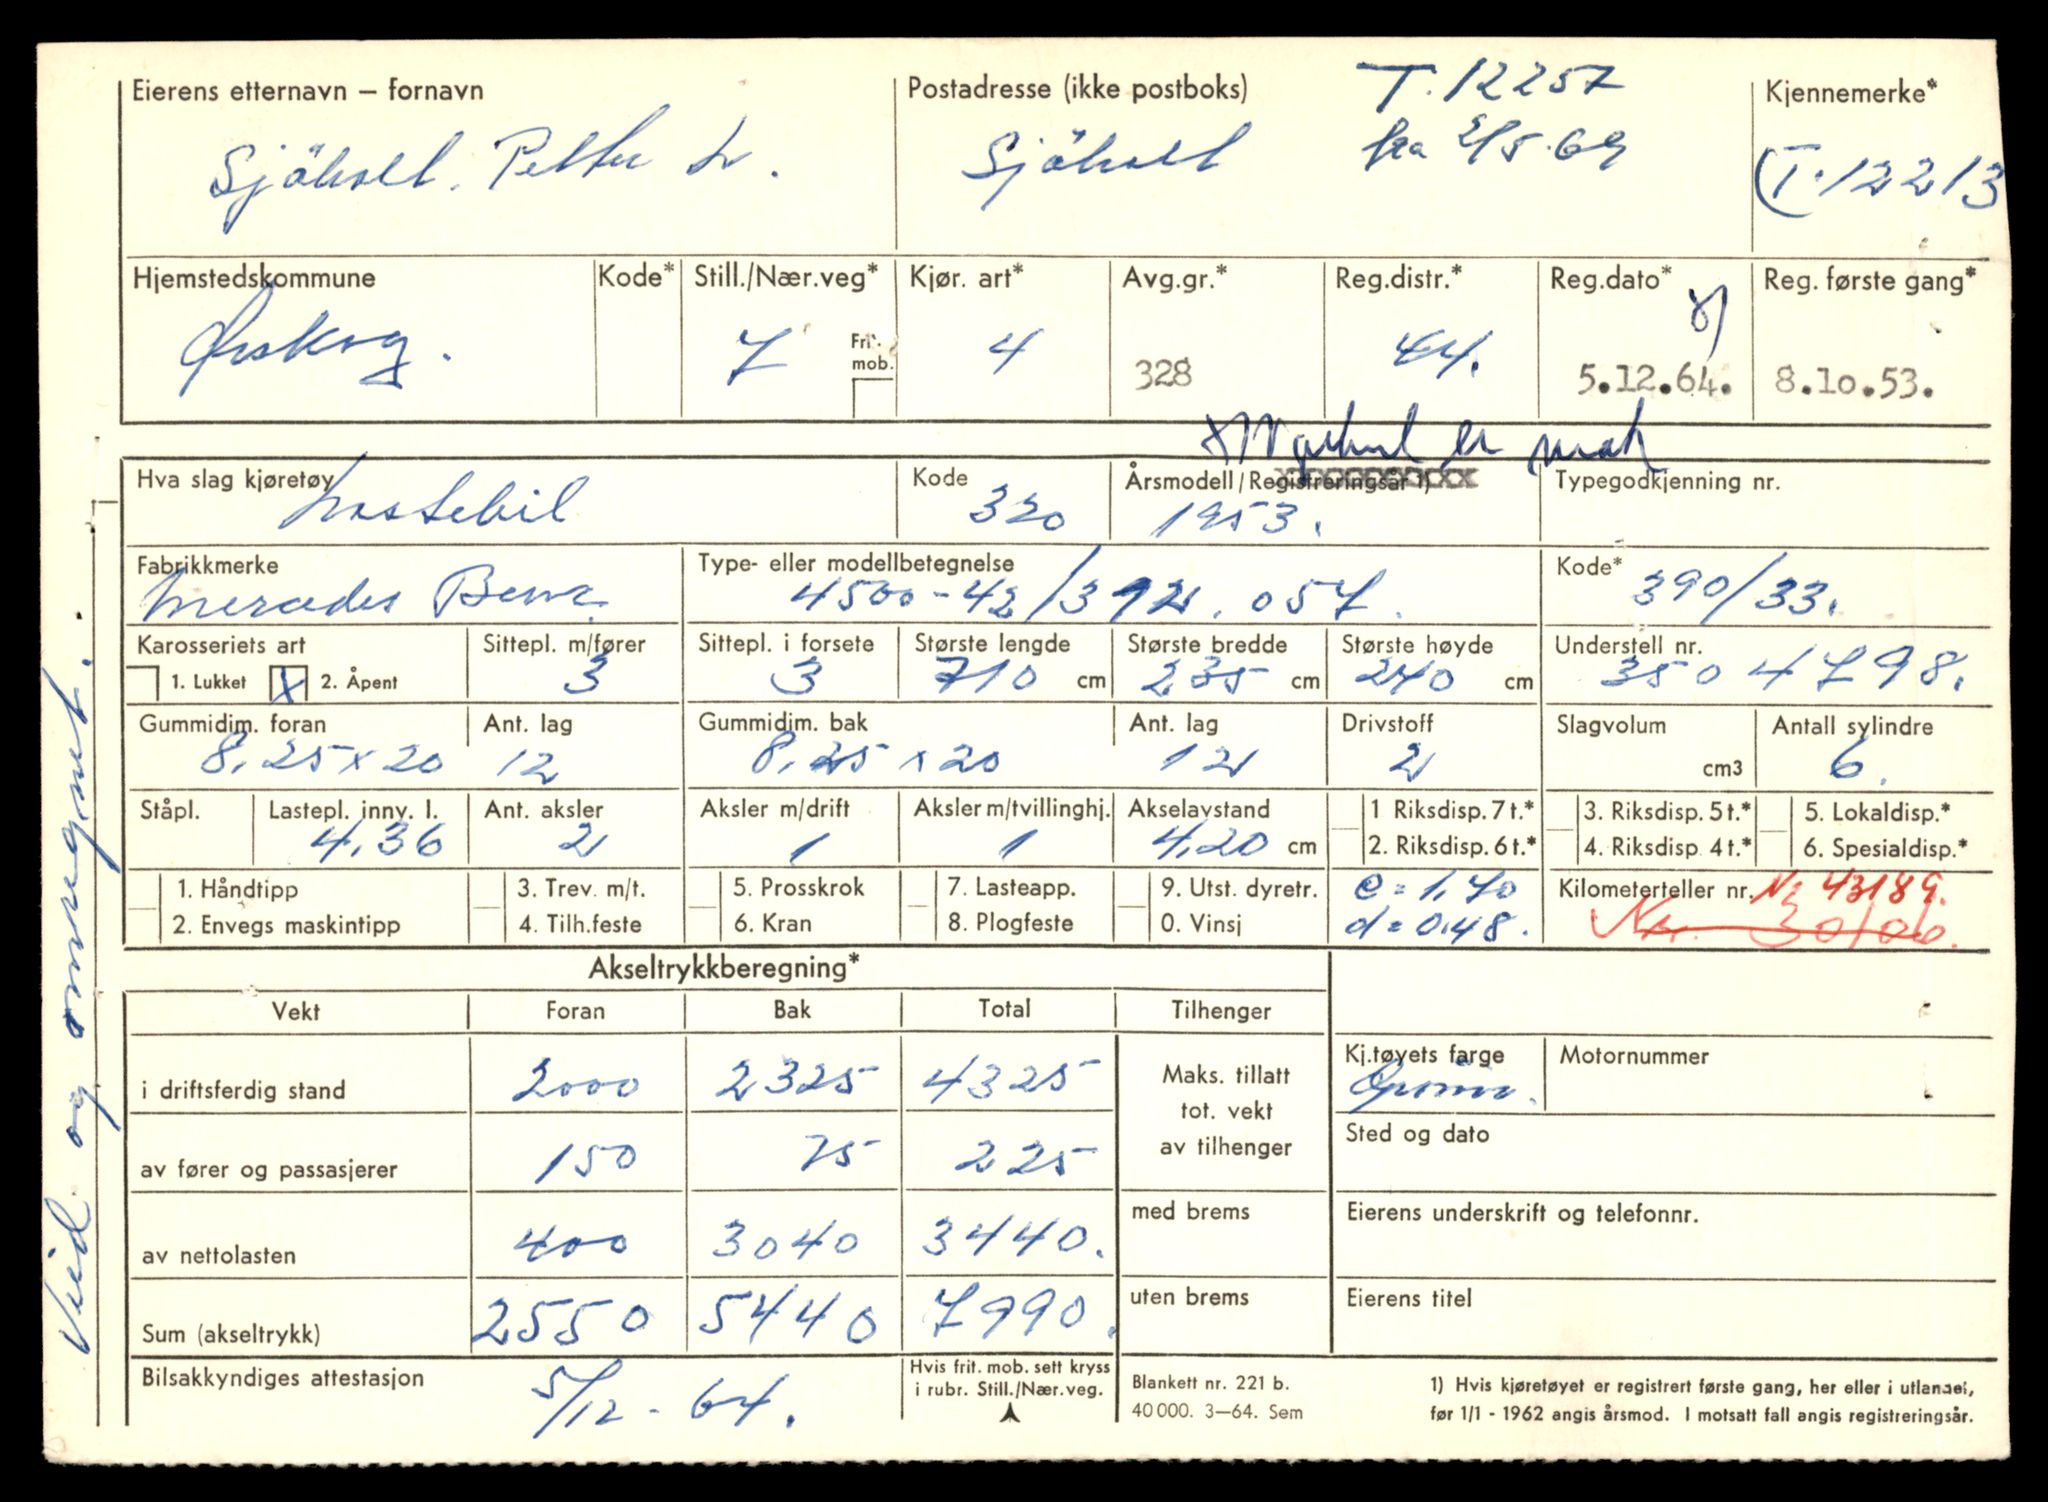 Eierens etternavn – fornavn
Sjöholt. Petter L.
Postadresse (ikke postboks)
Sjöholt
T. 12257
fra 2/5.69
Kjennemerke*
(T. 12213
Hjemstedskommune
Ørskog.
Kode*
Still./Nær.veg*
7
Frit. mob.
Kjør. art*
4
Avg.gr.*
328
Reg.distr.*
44.
Reg.dato*
5.12.64.
Reg. første gang*
8.10.53.
er
Hva slag kjøretøy
Lastebil
Kode
320
Årsmodell/Registreringsår 1)
1953.
Typegodkjenning nr.
Fabrikkmerke
Mercedes Benz.
Type- eller modellbetegnelse
4500-42/312.057.
Kode*
390/33.
Karosseriets art
1. Lukket
X 2. Åpent
Sittepl. m/fører
3
Sittepl. i forsete
3
Største lengde
710 cm
Største bredde
235 cm
Største høyde
240 cm
Understell nr.
350 4798.
Gummidim. foran
8,25 x 20
Ant. lag
12
Gummidim. bak
8,25 x 20
Ant. lag
12
Drivstoff
2
Slagvolum
cm3
Antall sylindre
6.
Ståpl.
Lastepl. innv. l.
4,36
Ant. aksler
2
Aksler m/drift
1
Aksler m/tvillinghj.
1
Akselavstand
4,20 cm
1 Riksdisp. 7 t.*
2. Riksdisp. 6 t.*
3. Riksdisp. 5 t.*
4. Riksdisp 4 t.*
5. Lokaldisp.*
6. Spesialdisp.*
1. Håndtipp
2. Envegs maskintipp
3. Trev. m/t.
4. Tilh.feste
5. Prosskrok
6. Kran
7. Lasteapp.
8. Plogfeste
9. Utst. dyretr.
0. Vinsj
e = 1,70
d = 0,48.
Kilometerteller nr. Nr 43189.
Nr. 30106.
Akseltrykkberegning*
Vekt Foran Bak Total Tilhenger
i driftsferdig stand 2000 2325 4325
av fører og passasjerer 150 75 225
av nettolasten 400 3040 3440.
Sum (akseltrykk) 2550 5440 7990.
Maks. tillatt
tot. vekt
av tilhenger
med brems
uten brems
Kj.tøyets farge
Grønn.
Motornummer
Sted og dato
Eierens underskrift og telefonnr.
Eierens titel
Bilsakkyndiges attestasjon
5/12 - 64.
Hvis frit. mob. sett kryss
i rubr. Still./Nær.veg.
Blankett nr. 221 b.
40 000. 3—64. Sem
1) Hvis kjøretøyet er registrert første gang, her eller i utlandet,
før 1/1 - 1962 angis årsmod. I motsatt fall angis registreringsår.
Veid og omregnet.